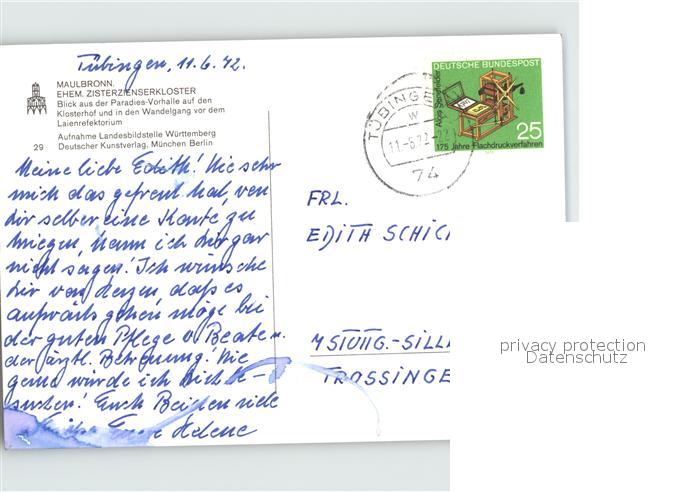 Tübingen, 11.6.72.
MAULBRONN.
EHEM. ZISTERZIENSERKLOSTER
Blick aus der Paradies-Vorhalle auf den
Klosterhof und in den Wandelgang vor dem
Laienrefektorium
29 Aufnahme Landesbildstelle Württemberg
Deutscher Kunstverlag, München Berlin
Meine liebe Edith! Wie sehr
mich das gefreut hat, von
dir selber eine Karte zu
kriegen, kann ich dir gar
nicht sagen! Ich wünsche
dir von Herzen, daß es
aufwärts gehen möge bei
der guten Pflege v. Beate u.
der ärztl. Betreuung! Wie
gerne würde ich dich be-
suchen! Euch Beiden viele
Helene
DEUTSCHE BUNDESPOST
Alois Senefelder
175 Jahre Flachdruckverfahren
25
TÜBINGE
11.-6.72
74
FRL.
EDITH SCHIC
7 STUTTG.-SILL
TROSSINGE
privacy protection
Datenschutz